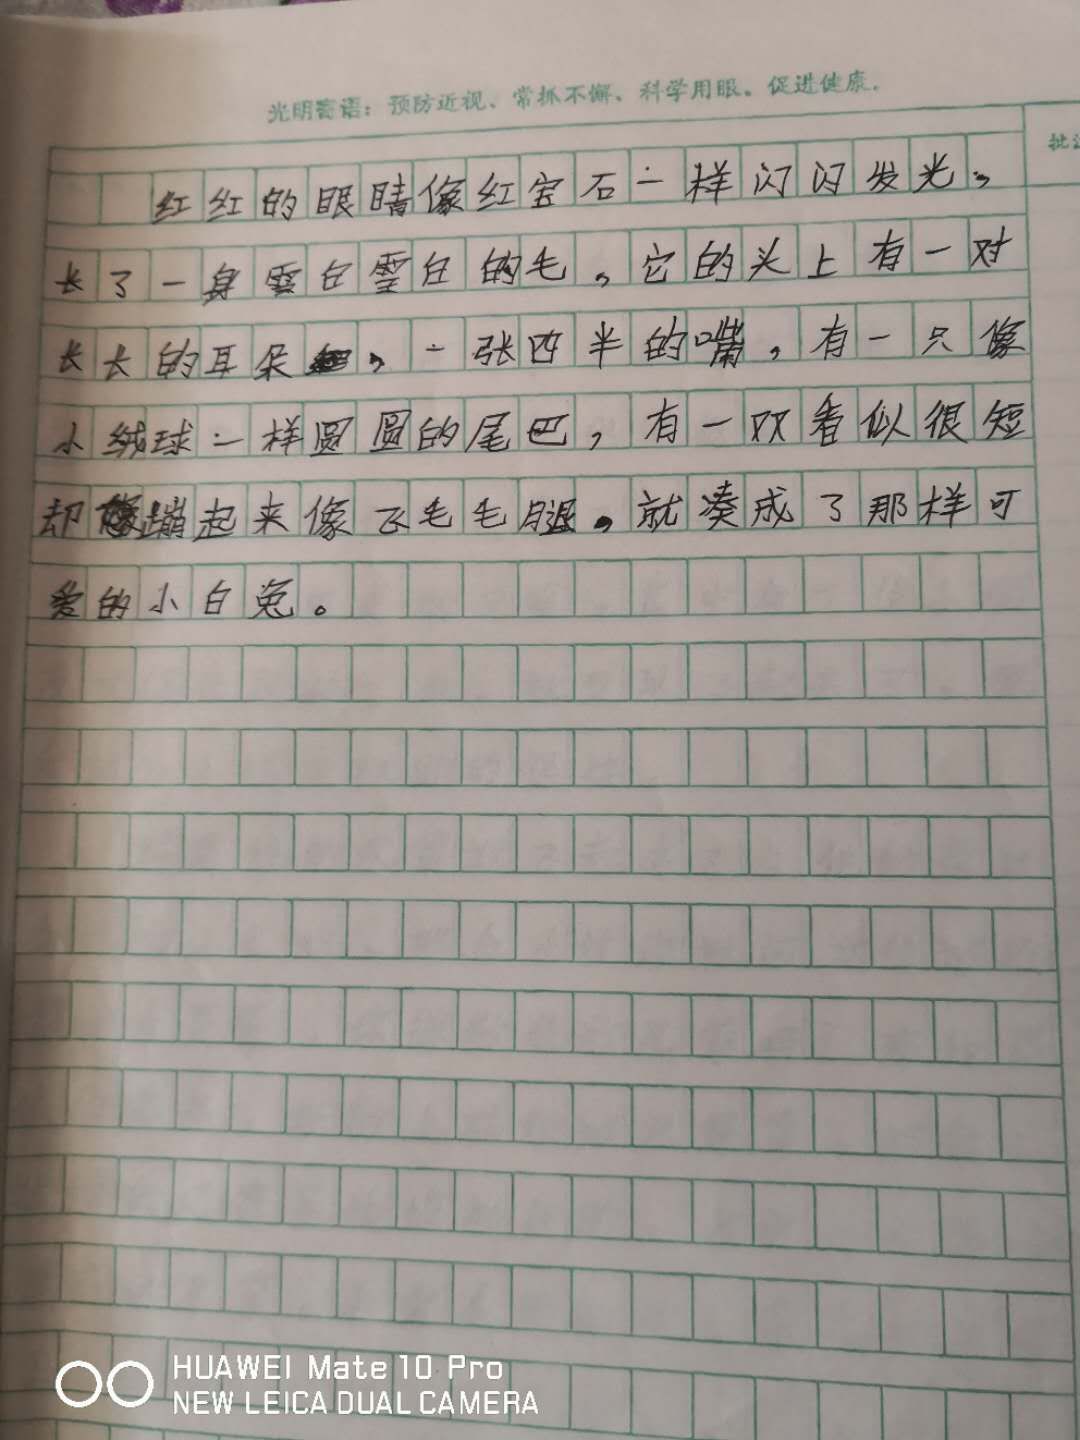 光明寄语：预防近视、常抓不懈、科学用眼。促进健康.
批注
红红的眼睛像红宝石一样闪闪发光，
长了一身雪白雪白的毛，它的头上有一对
长长的耳朵，一张四半的嘴，有一只像
小绒球一样圆圆的尾巴，有一双看似很短
却蹦起来像飞毛毛腿，就凑成了那样可
爱的小白兔。
HUAWEI Mate 10 Pro
NEW LEICA DUAL CAMERA